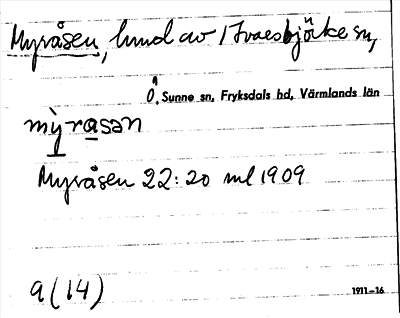 Myråsen, hmd av Ivarsbjörke sn,
Ö. Sunne sn, Fryksdals hd, Värmlands län
mỳrasan
Myråsen 22:20 ml 1909
a (14)
1911-16